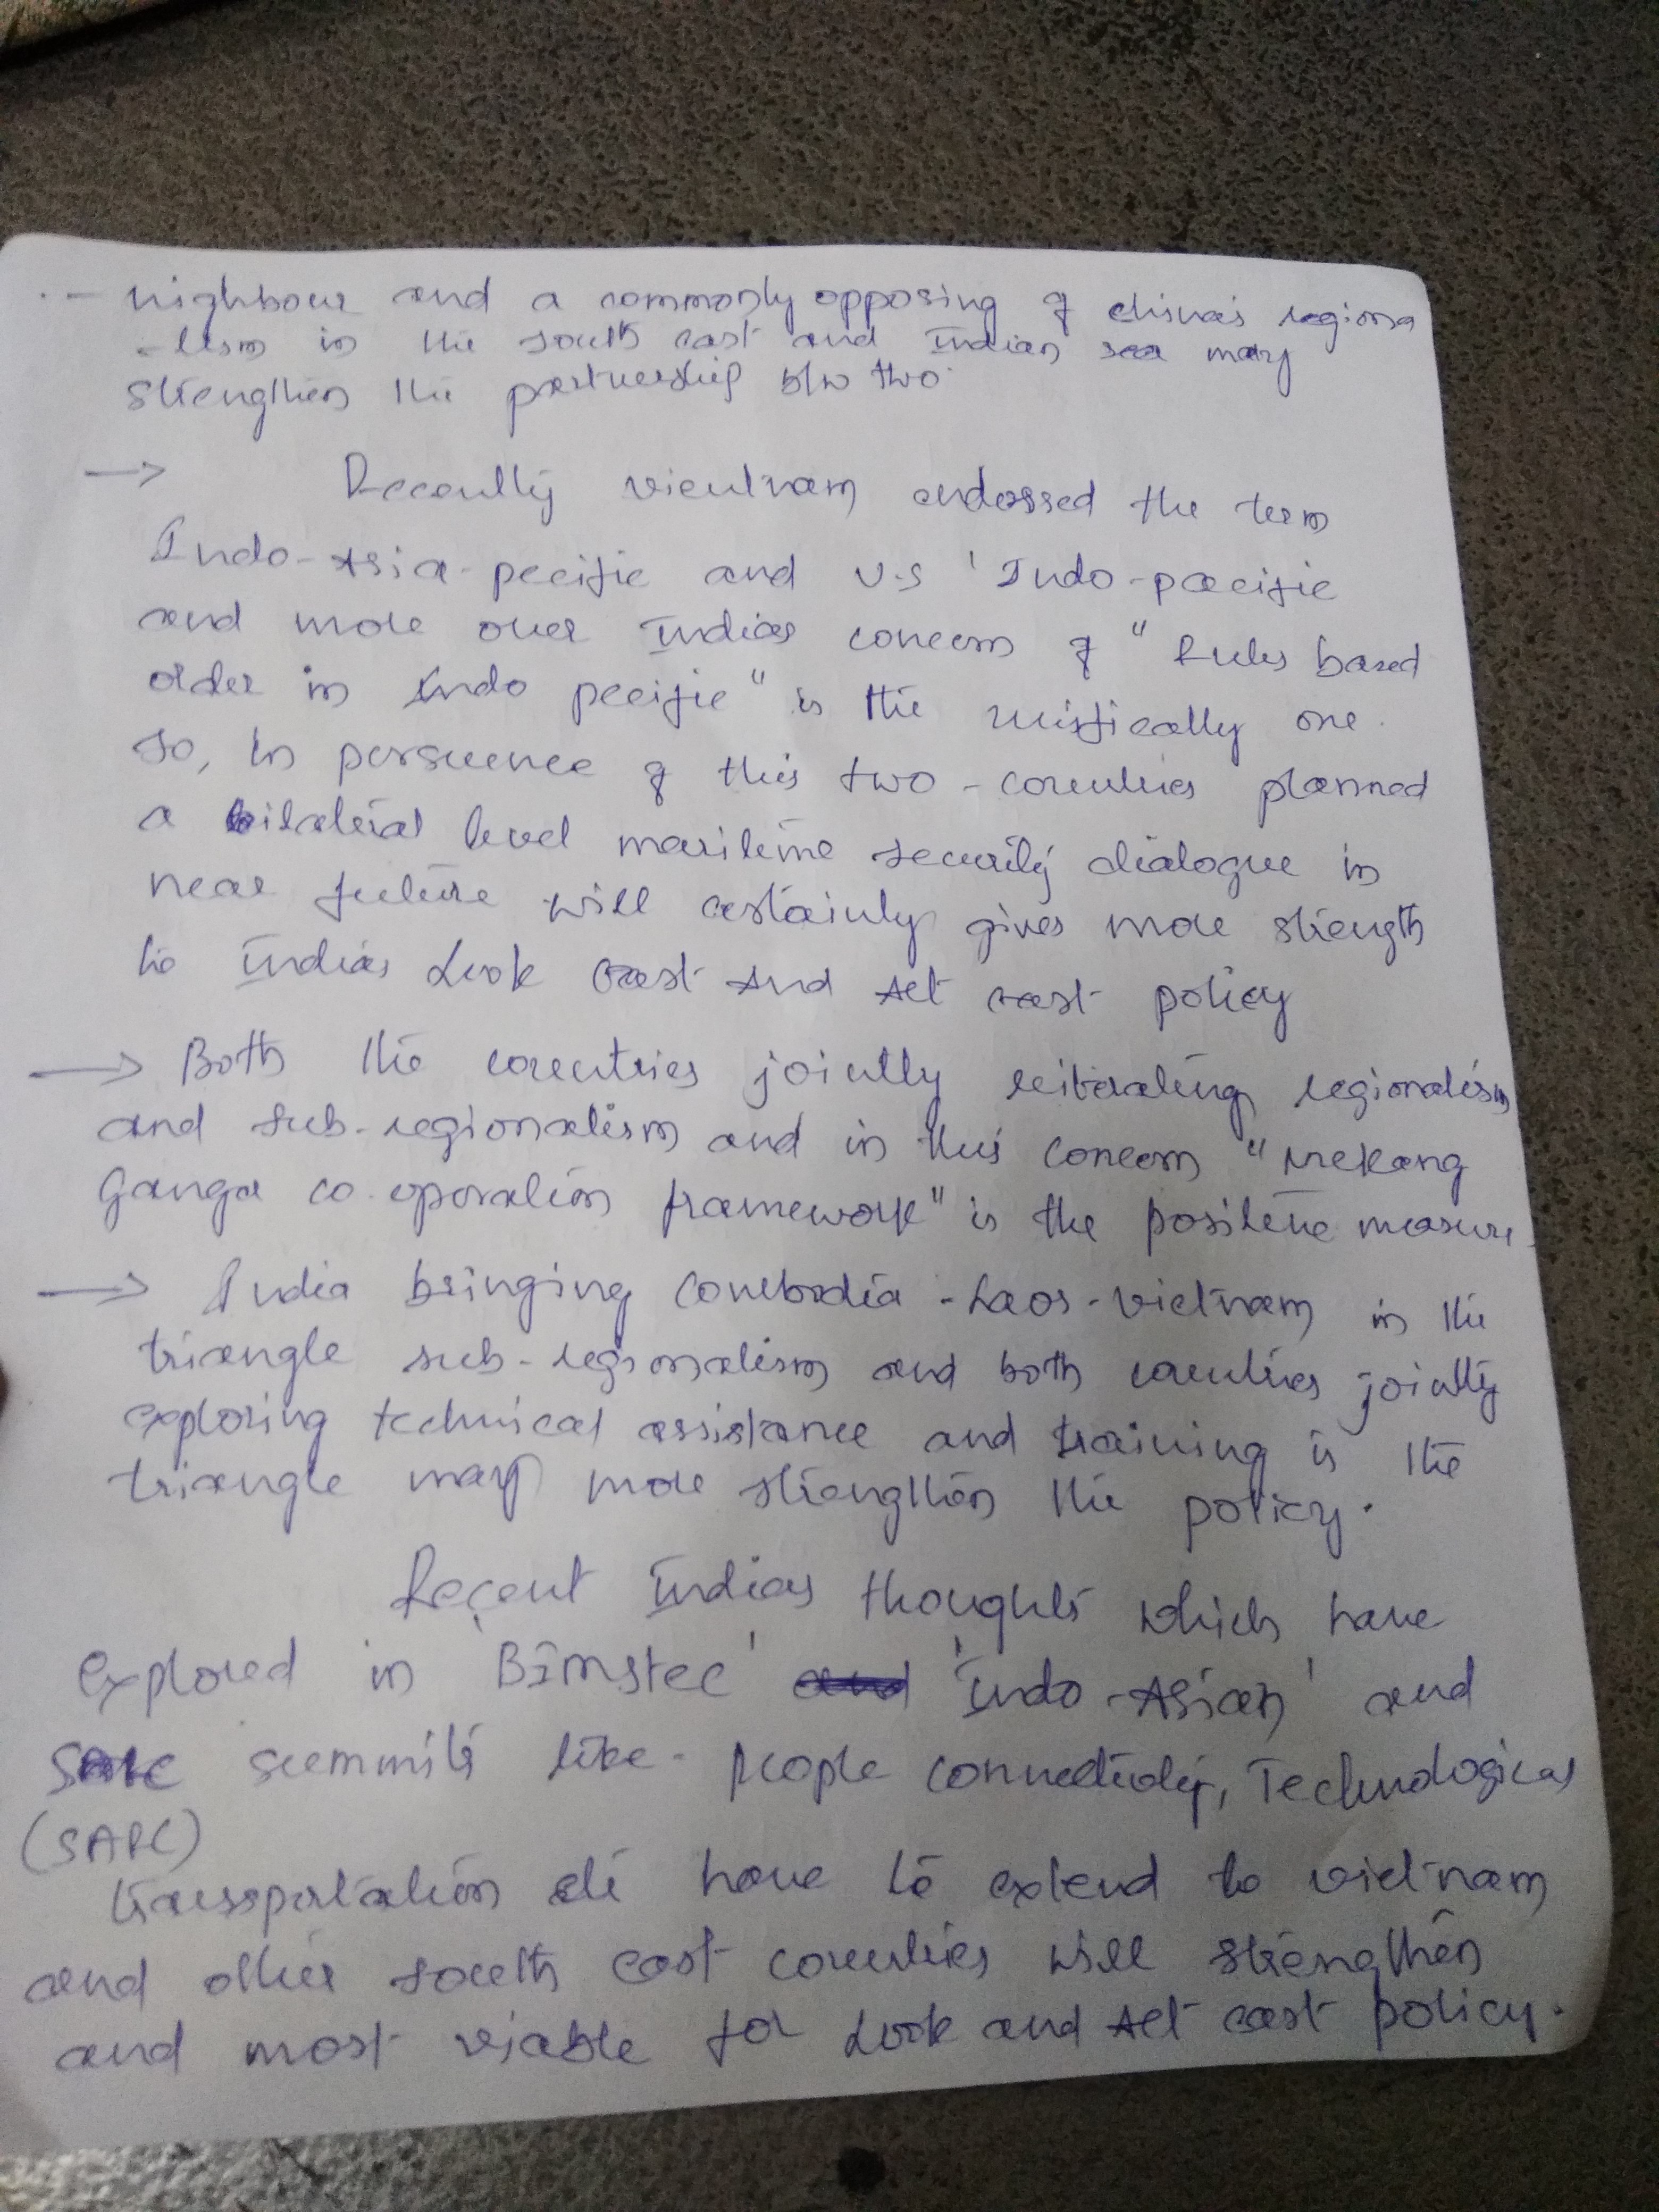 .- nighbour and a commonly opposing of china's regiona
-lism in the south east and Indian sea may
strengthen the partnership b/w two.
→ Recently vientnam endossed the term
Indo-Asia-pecific and U.S 'Indo-pacific
and more over India's concern of "Rules based
order in Indo pecific" is the one.
So, In persuence of this two-countries planned
a bilateral level maritime security dialogue in
near future will certainly gives more strength
to India's Look East And Act east policy
→ Both the countries jointly reiterating regionalism
and sub-regionalism and in this concern "Mekang
Ganga co-operation framework" is the positive measure.
→ India bringing Combodia-Laos-vietnam in the
triangle sub-regionalism and both countries jointly
exploring technical assistance and training is the
triangle may more strengthen the policy.
Recent India's thoughts which have
explored in 'BImstec' and 'Indo-Asian' and
summits like - people connectivity, Technological
(SARC)
transportation etc have to extend to vietnam
and other south east countries will strengthen
and most viable for Look and Act east policy.